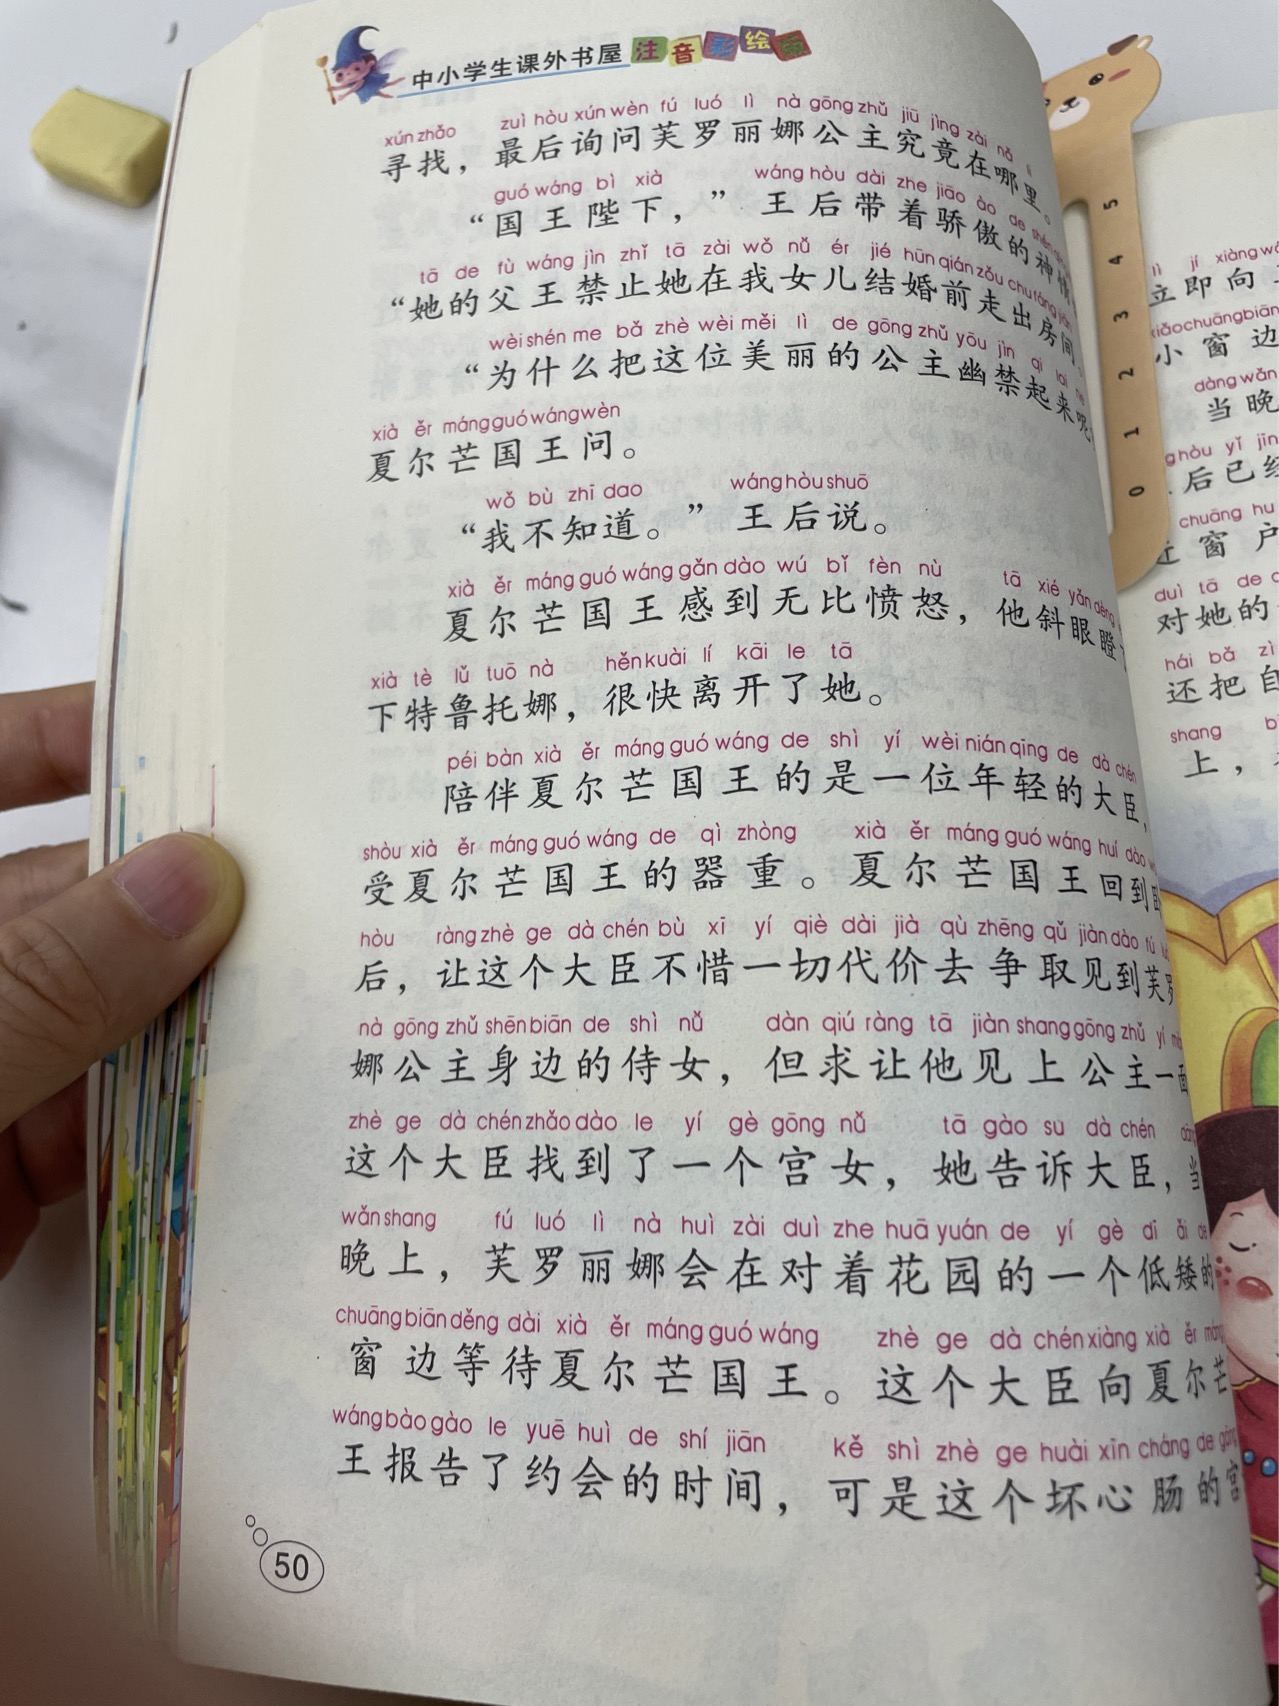 中小学生课外书屋 注音彩绘版
xún zhǎo zuì hòu xún wèn fú luó lì nà gōng zhǔ jiū jìng zài nǎ lǐ
寻找，最后询问芙罗丽娜公主究竟在哪里。
guó wáng bì xià wáng hòu dài zhe jiāo ào de shén
“国王陛下，”王后带着骄傲的神情
tā de fù wáng jìn zhǐ tā zài wǒ nǚ ér jié hūn qián zǒu chu fáng jiān
“她的父王禁止她在我女儿结婚前走出房间
wèi shén me bǎ zhè wèi měi lì de gōng zhǔ yōu jìn qi lai ne
“为什么把这位美丽的公主幽禁起来呢
xià ěr máng guó wáng wèn
夏尔芒国王问。
wǒ bù zhī dao wáng hòu shuō
“我不知道。”王后说。
xià ěr máng guó wáng gǎn dào wú bǐ fèn nù tā xié yǎn dèng
夏尔芒国王感到无比愤怒，他斜眼瞪
xià tè lǔ tuō nà hěn kuài lí kāi le tā
下特鲁托娜，很快离开了她。
péi bàn xià ěr máng guó wáng de shì yí wèi nián qīng de dà chén
陪伴夏尔芒国王的是一位年轻的大臣，
shòu xià ěr máng guó wáng de qì zhòng xià ěr máng guó wáng huí dào
受夏尔芒国王的器重。夏尔芒国王回到
hòu ràng zhè ge dà chén bù xī yí qiè dài jià qù zhēng qǔ jiàn dào fú
后，让这个大臣不惜一切代价去争取见到芙罗
nà gōng zhǔ shēn biān de shì nǚ dàn qiú ràng tā jiàn shang gōng zhǔ yí
娜公主身边的侍女，但求让他见上公主一面
zhè ge dà chén zhǎo dào le yí gè gōng nǚ tā gào su dà chén
这个大臣找到了一个宫女，她告诉大臣，当
wǎn shang fú luó lì nà huì zài duì zhe huā yuán de yí gè dī ǎi de
晚上，芙罗丽娜会在对着花园的一个低矮的
chuāng biān děng dài xià ěr máng guó wáng zhè ge dà chén xiàng xià ěr máng
窗边等待夏尔芒国王。这个大臣向夏尔芒
wáng bào gào le yuē huì de shí jiān kě shì zhè ge huài xīn cháng de gōng
王报告了约会的时间，可是这个坏心肠的宫
50
5
4
3
2
1
0
lì jí xiàng
立即向
xiǎo chuāng biān
小窗边
dàng wǎn
当晚
hòu yǐ jīn
后已经
chuāng hu
窗户
duì tā de
对她的
hái bǎ zì
还把自
shang
上，